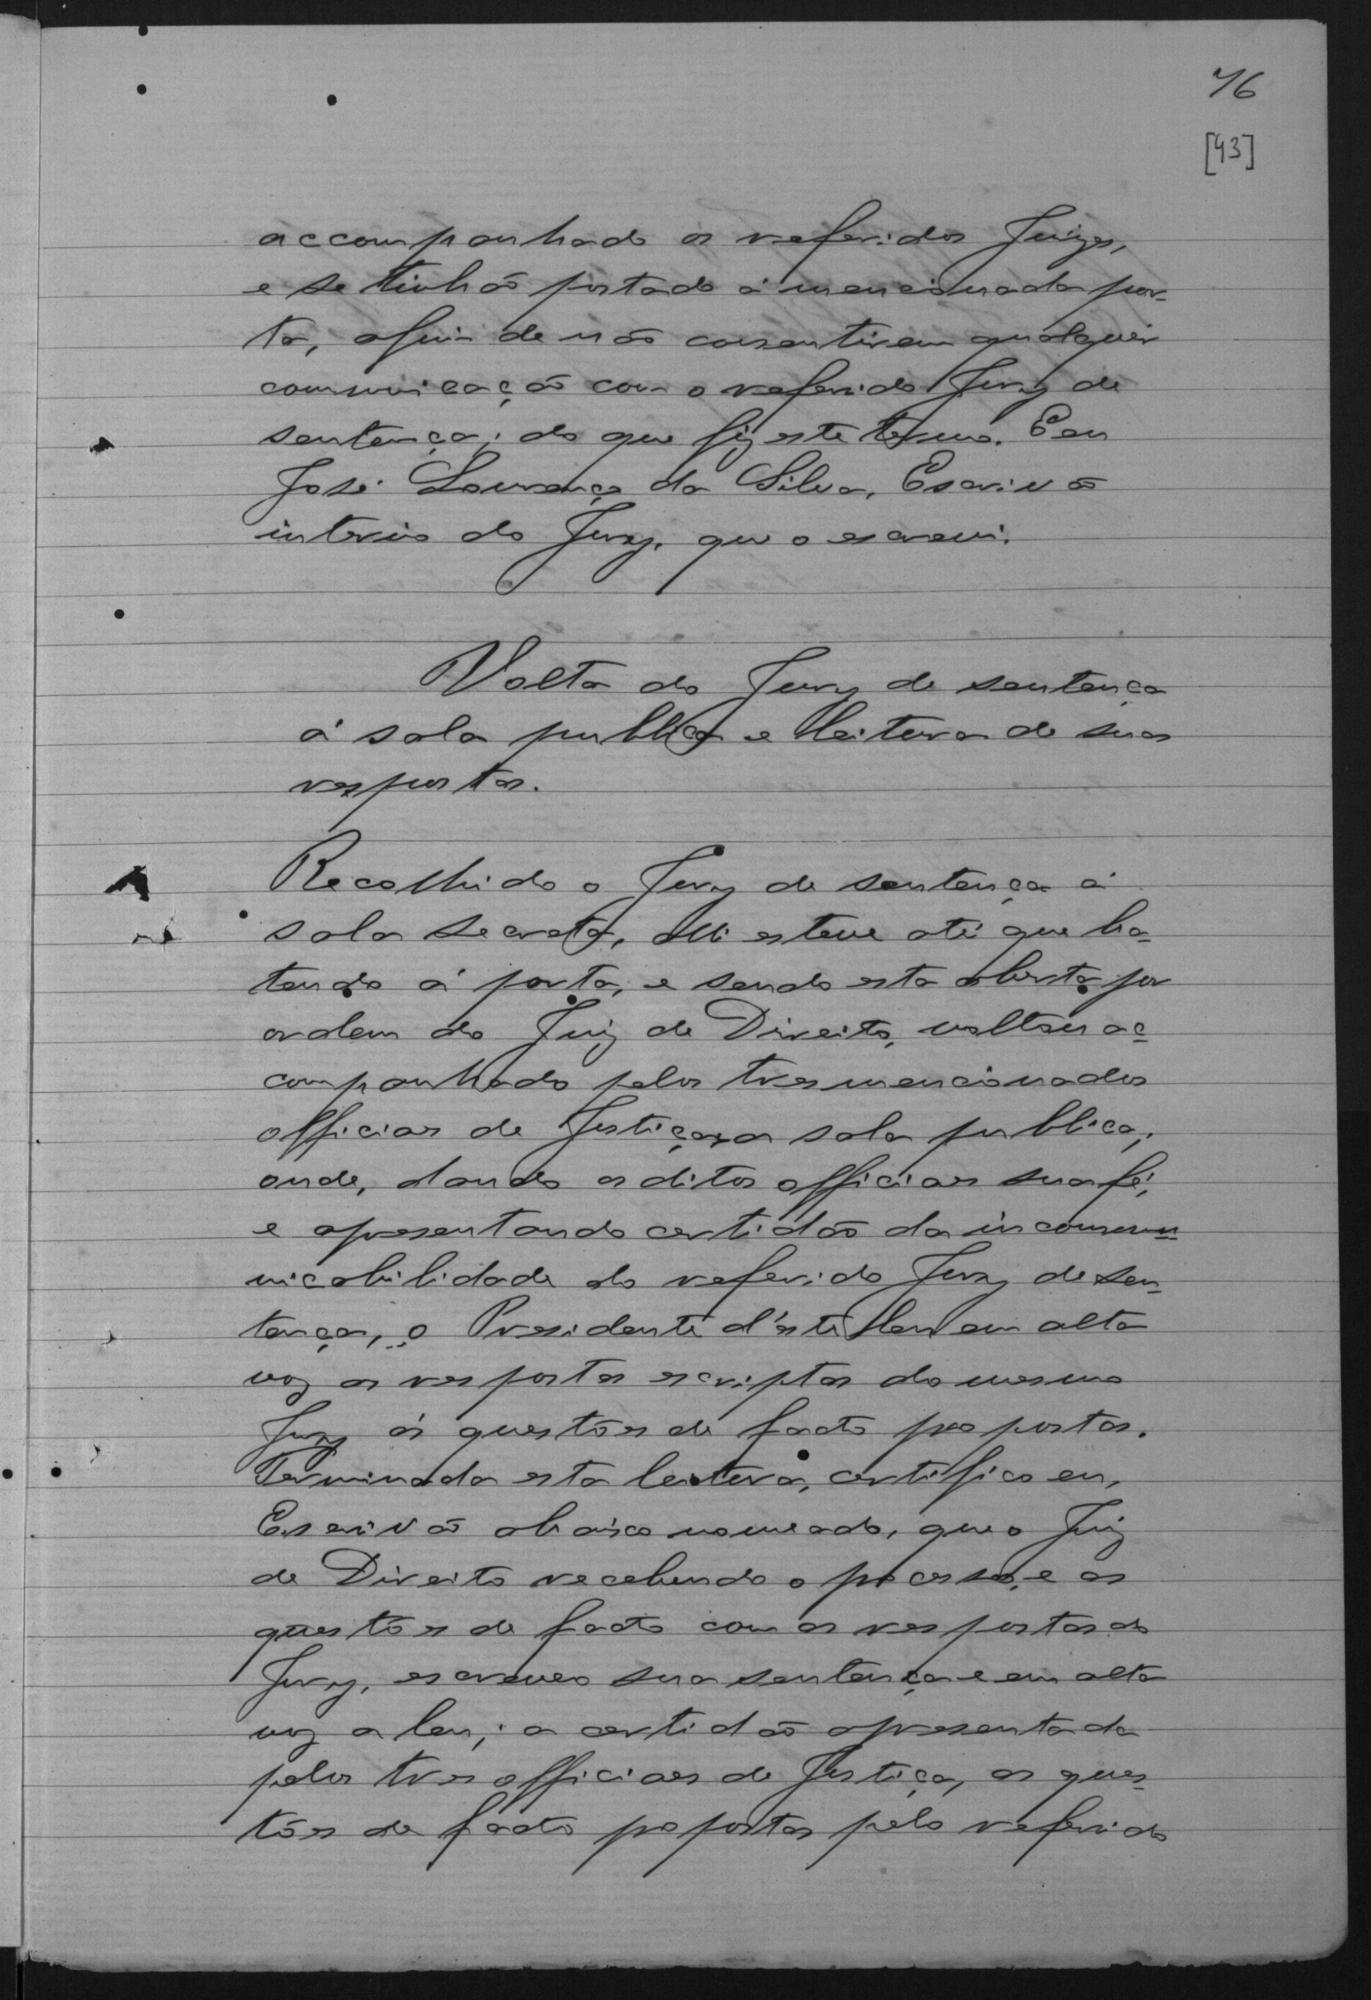 76
[43]
accompanhado os referidos Juizes,
e se tinhão postado á mencionada por-
ta, afim de não consentirem qualquer
communicação com o referido Jury de
sentença; do que fiz este termo. Eu
José Lourenço da Silva, Escrivão
interino do Jury, que o escrevi.
Volta do Jury de sentença
á sala publica e leitura de suas
respostas.
Recolhido o Jury de sentença á
sala secreta, alli esteve até que ba-
tendo á porta, e sendo esta aberta por
ordem do Juiz de Direito, voltou ac-
companhado pelos tres mencionados
officiaes de Justiça a sala publica,
onde, dando os ditos officiaes sua fé,
e apresentando certidão da incommu-
nicabilidade do referido Jury de sen-
tença, o Presidente d'este leu em alta
voz as respostas escriptas do mesmo
Jury ás questões de facto propostas.
Terminada esta leitura, certifico eu,
Escrivão abaixo nomeado, que o Juiz
de Direito recebendo o processo, e as
questões de facto com as respostas do
Jury, escreveo sua sentença e em alta
voz a leu; a certidão apresentada
pelos tres officiaes de Justiça, as ques-
tões de facto propostas pelo referido